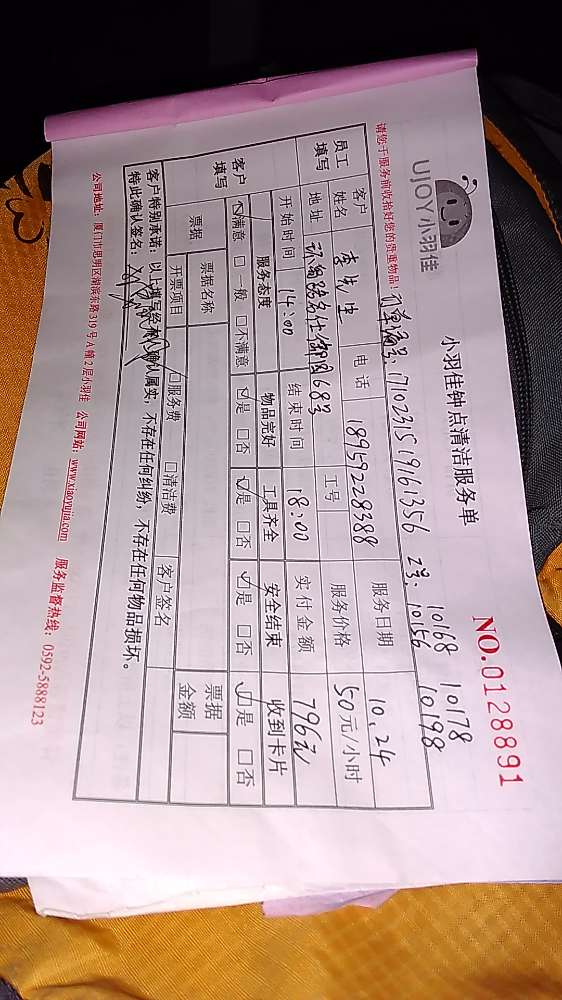 UJOY小羽佳
小羽佳钟点清洁服务单
NO.0128891
10168 10178
请您于服务前收拾好您的贵重物品！ 订单编号：1710231519161356 工号：10156 10198
员工填写 客户姓名 李先生 电话 18959228388 服务日期 10.24
地址 683 工号 服务价格 50元/小时
开始时间 14:00 结束时间 18:00 实付金额 796元
客户填写 服务态度 物品完好 工具齐全 安全结束 收到卡片
☑满意 □一般 □不满意 ☑是 □否 ☑是 □否 ☑是 □否 ☑是 □否
票据 票据名称 客户签名 票据金额
开票项目 □服务费 □清洁费
客户特别承诺：以上填写经本人确认属实，不存在任何纠纷，不存在任何物品损坏。
特此确认签名：
公司地址：厦门市思明区湖滨东路319号A幢2层小羽佳 公司网站：www.xiaoyujia.com 服务监督热线：0592-5888123